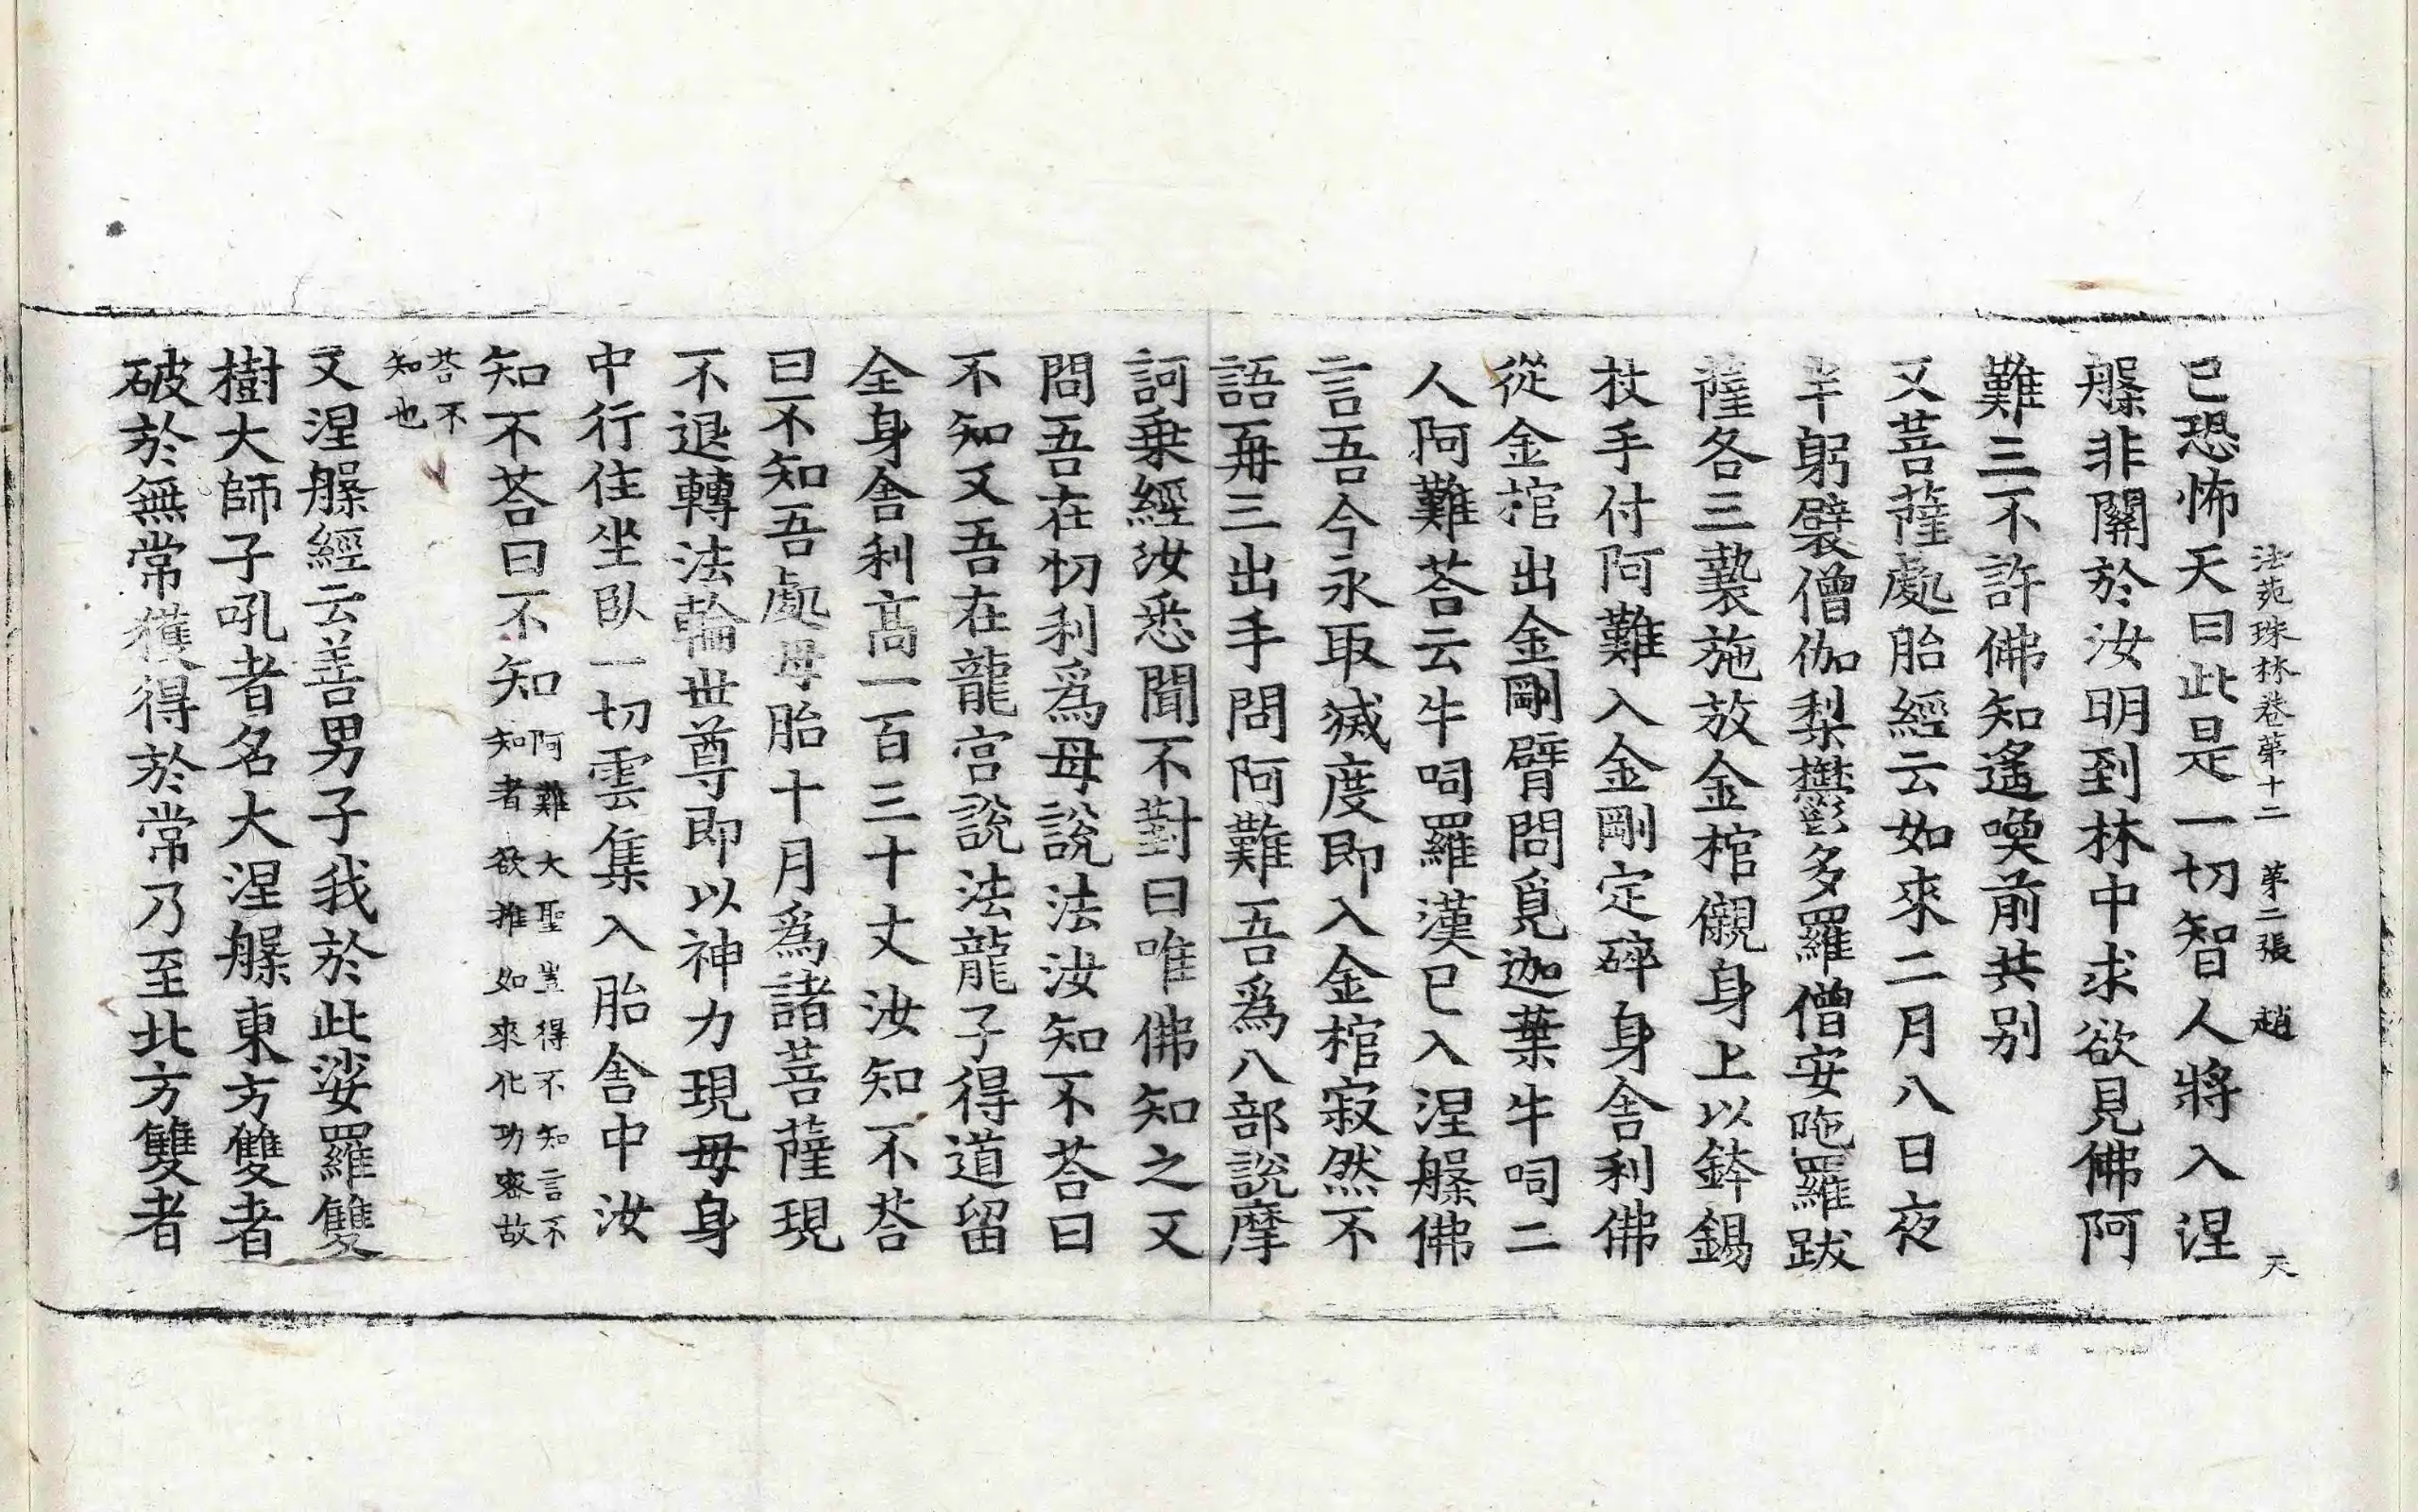 法苑珠林卷第十二 第二張 趙 天
已恐怖天曰此是一切智人將入涅
槃非關於汝明到林中求欲見佛阿
難三不許佛知遙喚前共別
又菩薩處胎經云如來二月八日夜
半躬襞僧伽梨欝多羅僧安陁羅跋
薩各三褺施放金棺儭身上以鉢錫
杖手付阿難入金剛定碎身舍利佛
從金棺出金剛臂問覓迦葉牛呞二
人阿難荅云牛呞羅漢已入涅槃佛
言吾今永取滅度即入金棺寂然不
語再三出手問阿難吾爲八部說摩
訶乗經汝悉聞不對曰唯佛知之又
問吾在忉利爲母說法汝知不荅曰
不知又吾在龍宮說法龍子得道留
全身舍利高一百三十丈汝知不荅
曰不知吾處母胎十月爲諸菩薩現
不退轉法輪世尊即以神力現母身
中行住坐臥一切雲集入胎舍中汝
知不荅曰不知阿難大聖豈得不知言不知者欲推如來化功密故
荅不知也
又涅槃經云善男子我於此娑羅雙
樹大師子吼者名大涅槃東方雙者
破於無常獲得於常乃至北方雙者